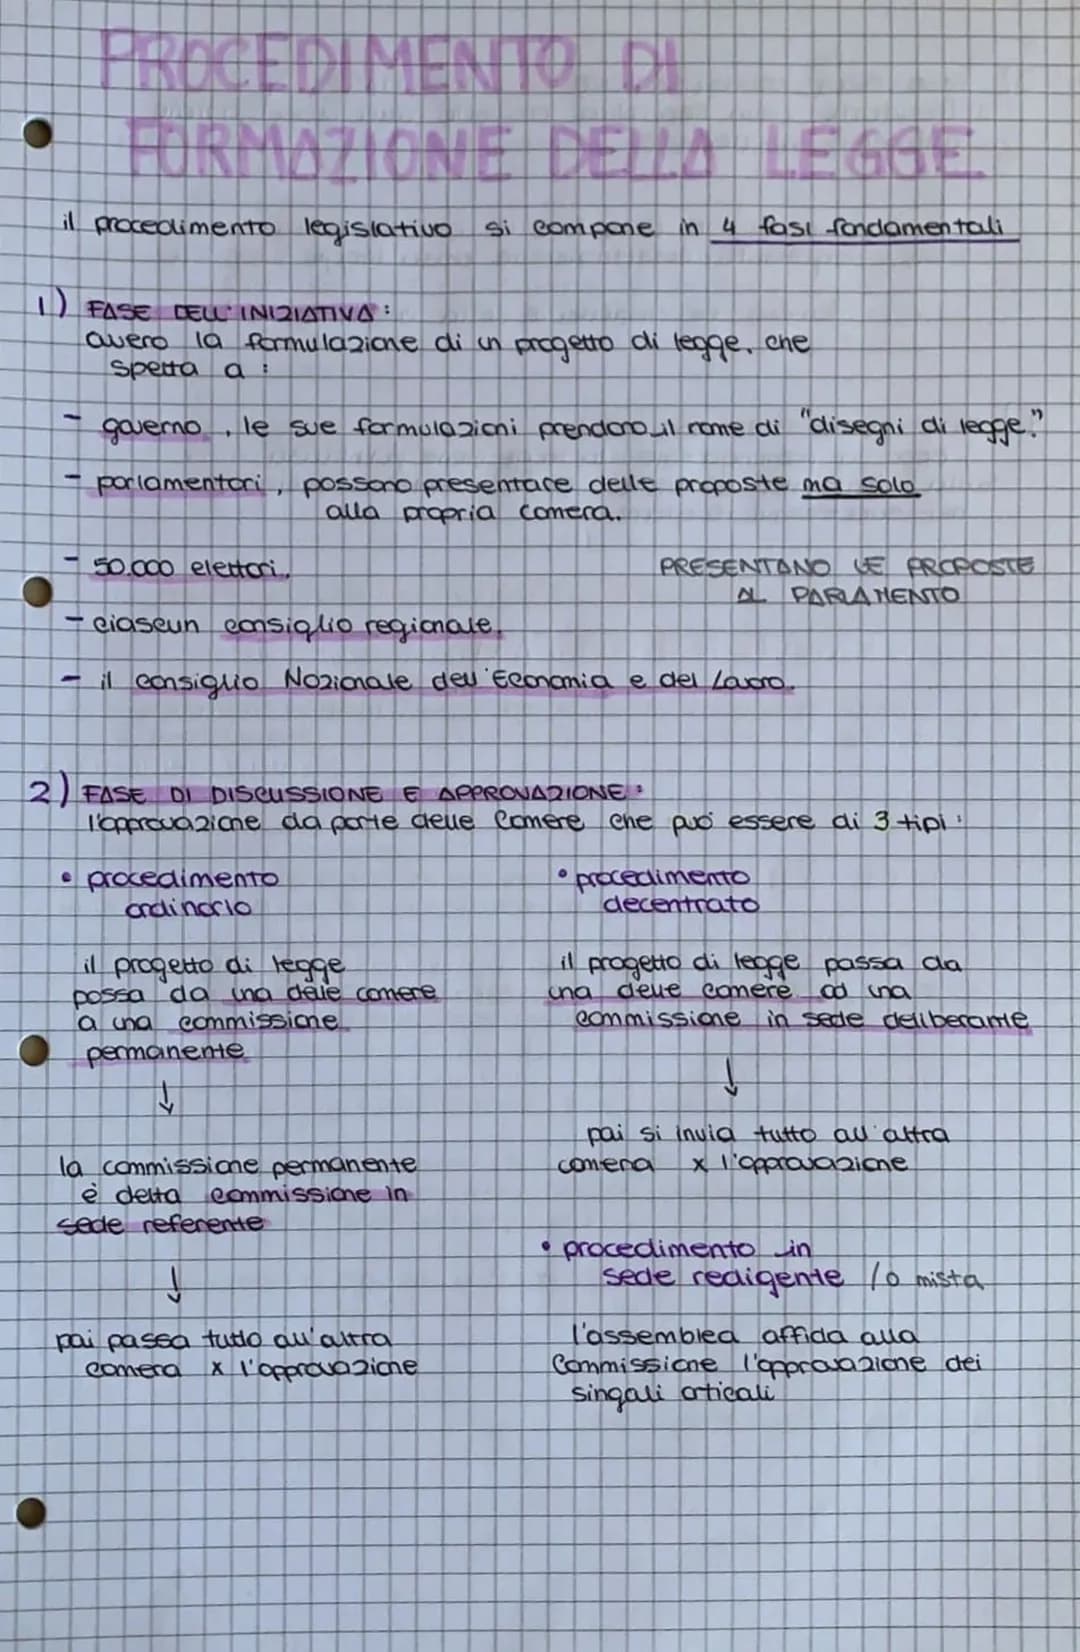 PROCEDIMENTO DI
FORMAZIONE DELLA LEGGE
il procedimento legislativo si compone in 4 fasi fondamentali
1) FASE DELL'INIZIATIVA:
avero la formulazione di un progetto di legge, che
spetta a:
- governo, le sue formulazioni prendono il nome di "disegni di legge."
- parlamentari, possono presentare delle proposte ma solo
alla propria camera.
- 50.000 elettori.
PRESENTANO LE PROPOSTE
AL PARLAMENTO
- ciascun consiglio regionale.
- il consiglio Nazionale dell'Economia e del Lavoro.
2) FASE DI DISCUSSIONE E APPROVAZIONE:
l'approvazione da parte delle Camere che può essere di 3 tipi:
• procedimento
ordinario
il progetto di legge
passa da una delle camere
a una commissione
permanente
↓
la commissione permanente
è detta commissione in
sede referente
↓
poi passa tutto all'altra
camera x l'approvazione
• procedimento
decentrato
il progetto di legge passa da
una delle camere ad una
commissione in sede deliberante
↓
poi si invia tutto all'altra
camera x l'approvazione
• procedimento in
sede redigente /o mista
l'assemblea affida alla
Commissione l'approvazione dei
singoli articoli